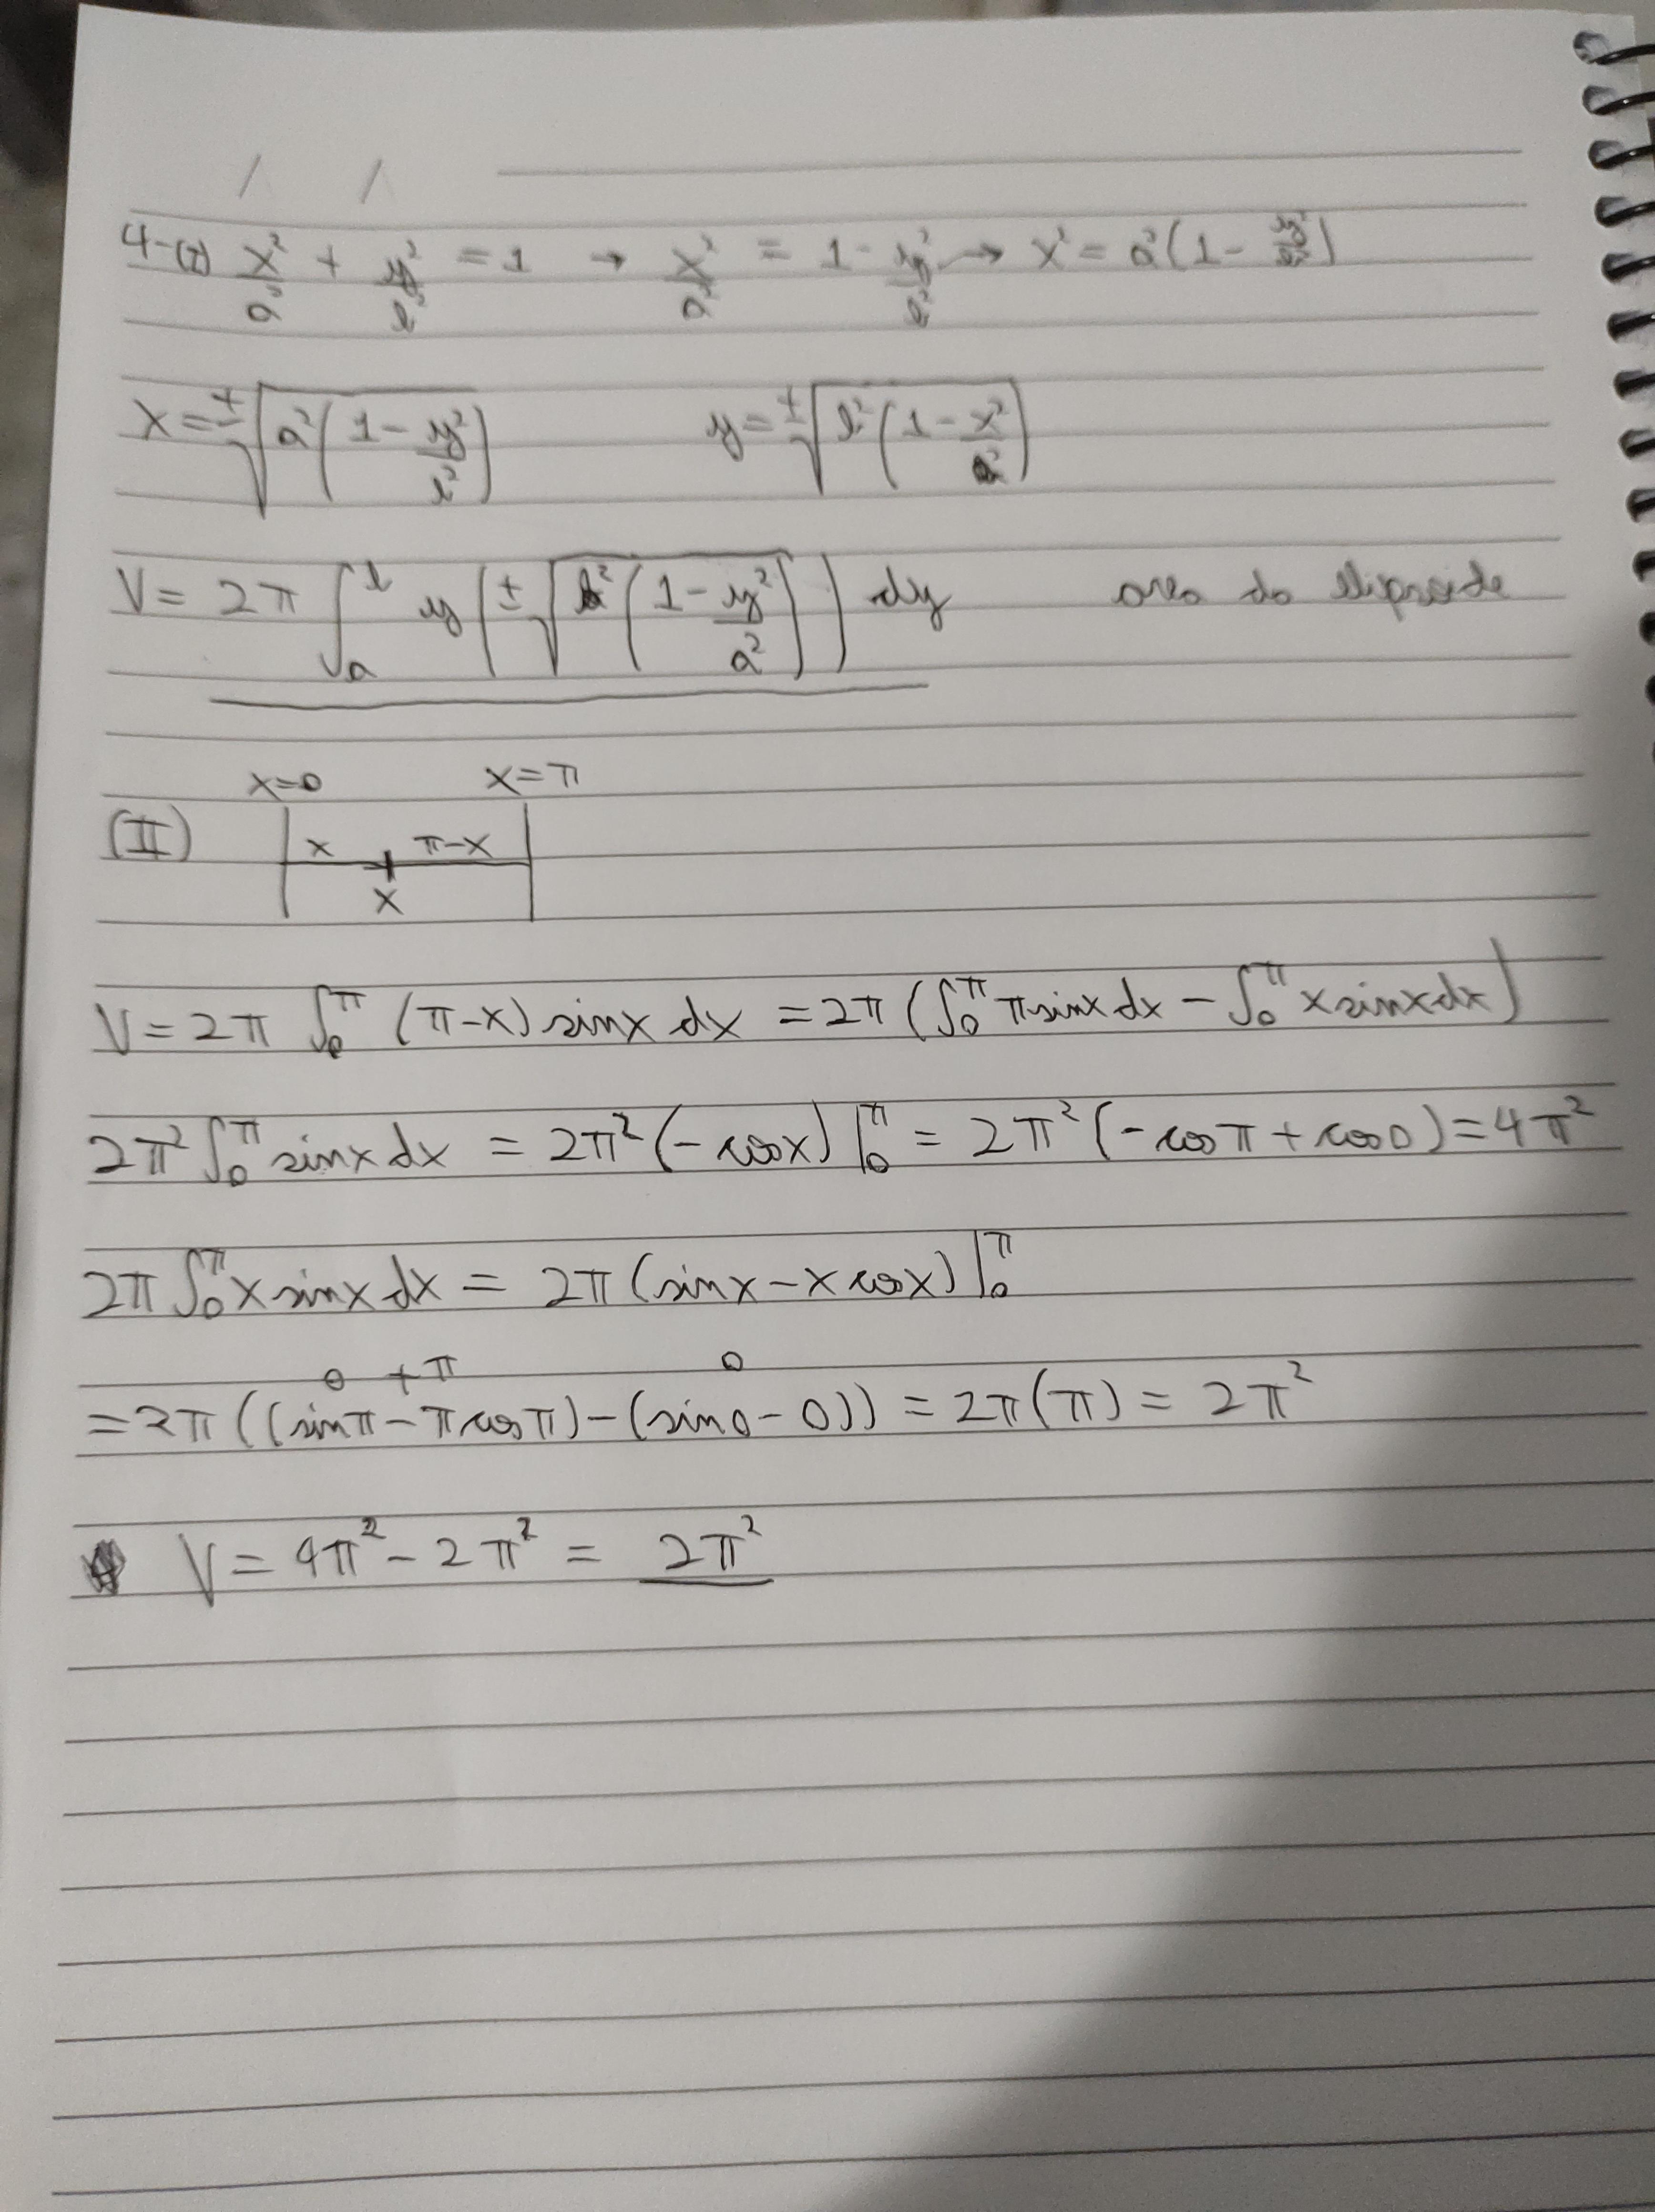 / /
4-(I) x²/a² + y²/b² = 1 → x²/a² = 1 - y²/b² → x² = a²(1 - y²/b²)
x = ±√(a²(1 - y²/b²)) y = ±√(b²(1 - x²/a²))
V = 2π ∫ₐᵇ y(±√(b²(1 - y²/a²))) dy area do elipsoide
x=0 x=π
(II) x π-x
x
V = 2π ∫₀^π (π-x) sinx dx = 2π (∫₀^π π sinx dx - ∫₀^π x sinx dx)
2π² ∫₀^π sinx dx = 2π² (-cosx)|₀^π = 2π² (-cosπ + cos0) = 4π²
2π ∫₀^π x sinx dx = 2π (sinx - x cosx)|₀^π
0 +π 0
= 2π ((sinπ - π cosπ) - (sin0 - 0)) = 2π(π) = 2π²
V = 4π² - 2π² = 2π²